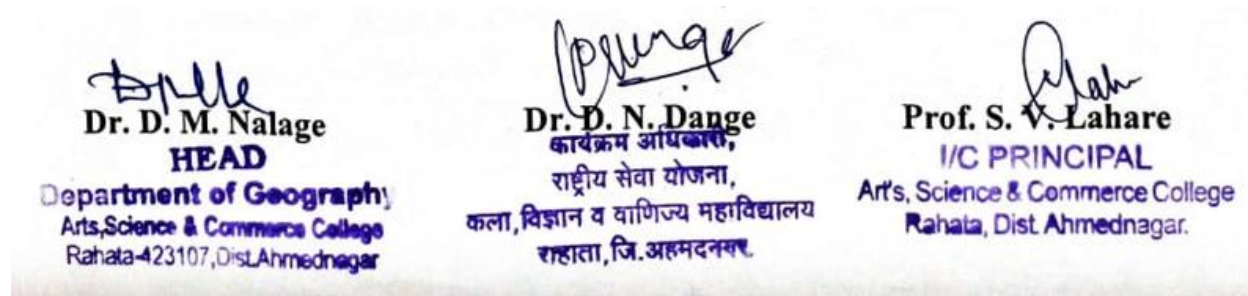 Dr. D. M. Nalage
HEAD
Department of Geography
Arts,Science & Commerce College
Rahata-423107,Dist.Ahmednagar
Dr. D. N. Dange
कार्यक्रम अधिकारी,
राष्ट्रीय सेवा योजना,
कला,विज्ञान व वाणिज्य महाविद्यालय
राहाता,जि.अहमदनगर.
Prof. S. V. Lahare
I/C PRINCIPAL
Art's, Science & Commerce College
Rahata, Dist. Ahmednagar.